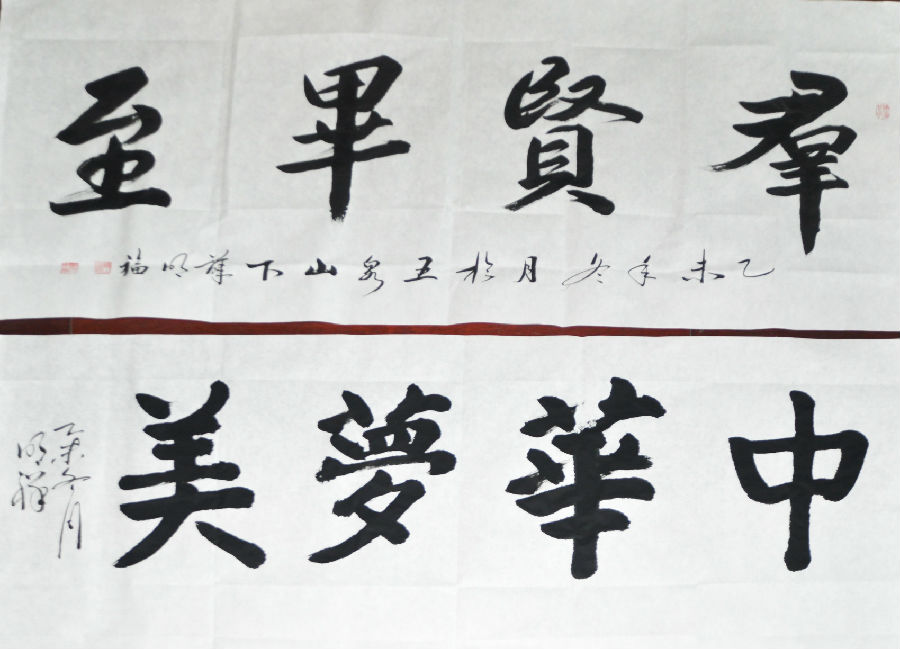 羣賢畢至
乙未年冬月於五泉山下葉明福
中華夢美
乙未冬月
明祥